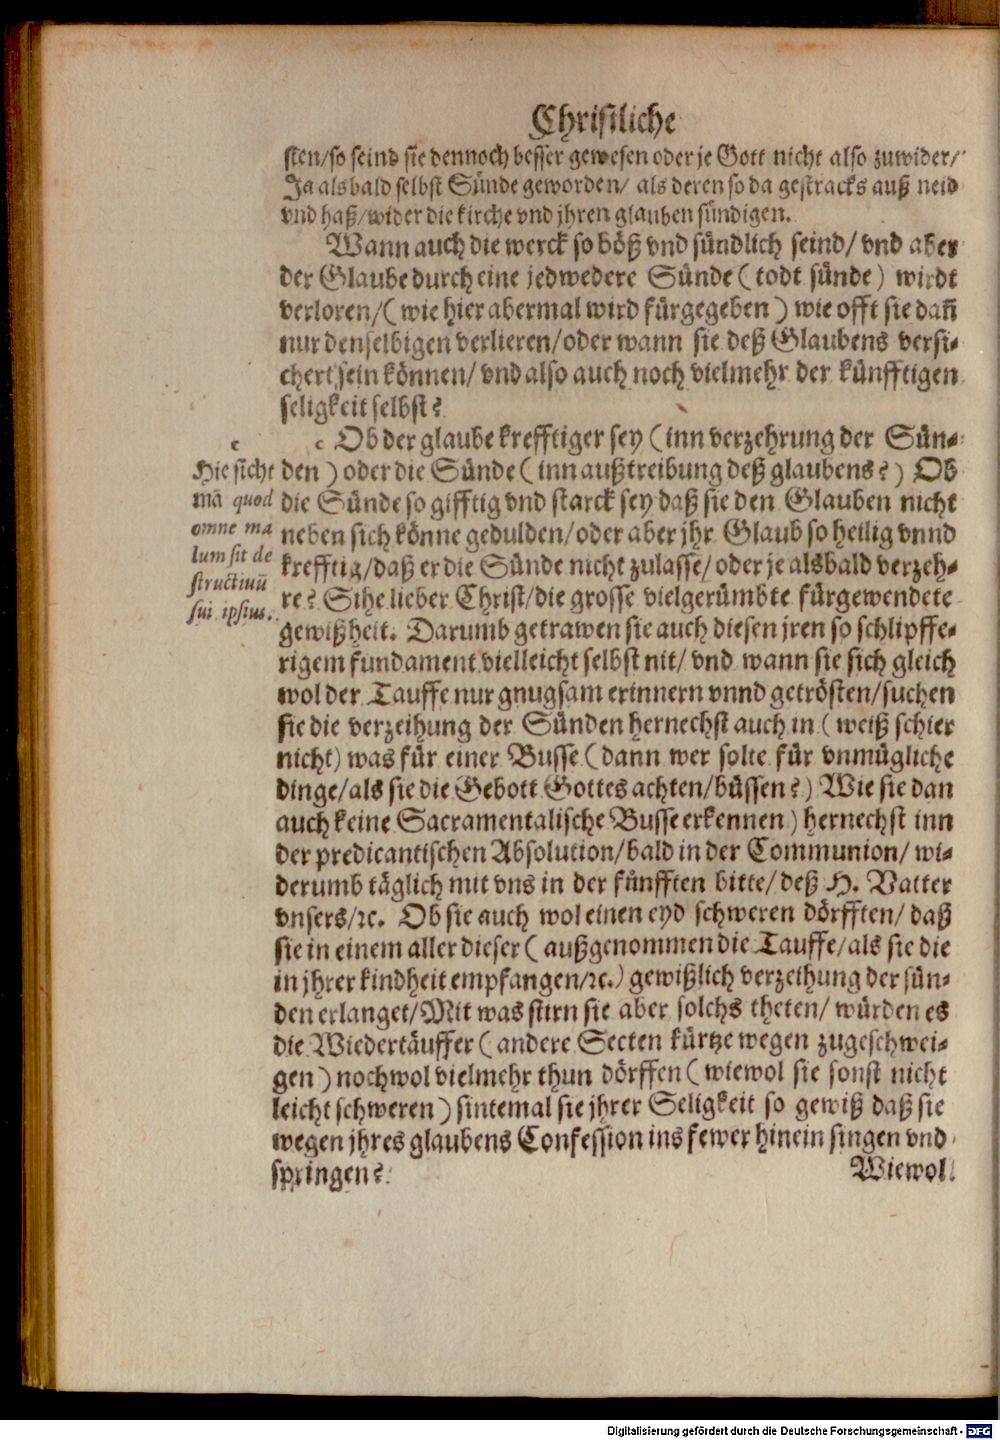 Christliche
sten/so seind sie dennoch besser gewesen oder je Gott nicht also zuwider/
Ja alsbald selbst Sünde geworden/ als deren so da gestracks auß neid
vnd haß/wider die kirche vnd jhren glauben sündigen.
Wann auch die werck so böß vnd sündlich seind/ vnd aber
der Glaube durch eine jedwedere Sünde (todt sünde) wirdt
verloren/(wie hier abermal wird fürgegeben) wie offt sie dañ
nur denselbigen verlieren/oder wann sie deß Glaubens versi-
chert sein können/ vnd also auch noch vielmehr der künfftigen
seligkeit selbst?
e Ob der glaube krefftiger sey (inn verzehrung der Sün-
den) oder die Sünde (inn außtreibung deß glaubens?) Ob
die Sünde so gifftig vnd starck sey daß sie den Glauben nicht
neben sich könne gedulden/oder aber jhr Glaub so heilig vnnd
krefftig/daß er die Sünde nicht zulasse/ oder je alsbald verzeh-
re? Sihe lieber Christ/die grosse vielgerümbte fürgewendete
gewißheit. Darumb getrawen sie auch diesen jren so schlipffe-
rigem fundament vielleicht selbst nit/ vnd wann sie sich gleich
wol der Tauffe nur gnugsam erinnern vnnd getrösten/suchen
sie die verzeihung der Sünden hernechst auch in (weiß schier
nicht) was für einer Busse (dann wer solte für vnmügliche
dinge/als sie die Gebott Gottes achten/büssen?) Wie sie dan
auch keine Sacramentalische Busse erkennen) hernechst inn
der predicantischen Absolution/bald in der Communion/ wi-
derumb täglich mit vns in der fünfften bitte/ deß H. Vatter
vnsers/ꝛc. Ob sie auch wol einen eyd schweren dörfften/ daß
sie in einem aller dieser (außgenommen die Tauffe/als sie die
in jhrer kindheit empfangen/ꝛc.) gewißlich verzeihung der sün-
den erlanget/Mit was stirn sie aber solchs theten/ würden es
die Wiedertäuffer (andere Secten kürtze wegen zugeschwei-
gen) noch wol vielmehr thun dörffen (wiewol sie sonst nicht
leicht schweren) sintemal sie jhrer Seligkeit so gewiß daß sie
wegen jhres glaubens Confession ins fewer hinein singen vnd
springen?
Wiewol
e
Hie sicht
mā quod
omne ma
lum sit de
structivū
sui ipsius.
Digitalisierung gefördert durch die Deutsche Forschungsgemeinschaft - DFG